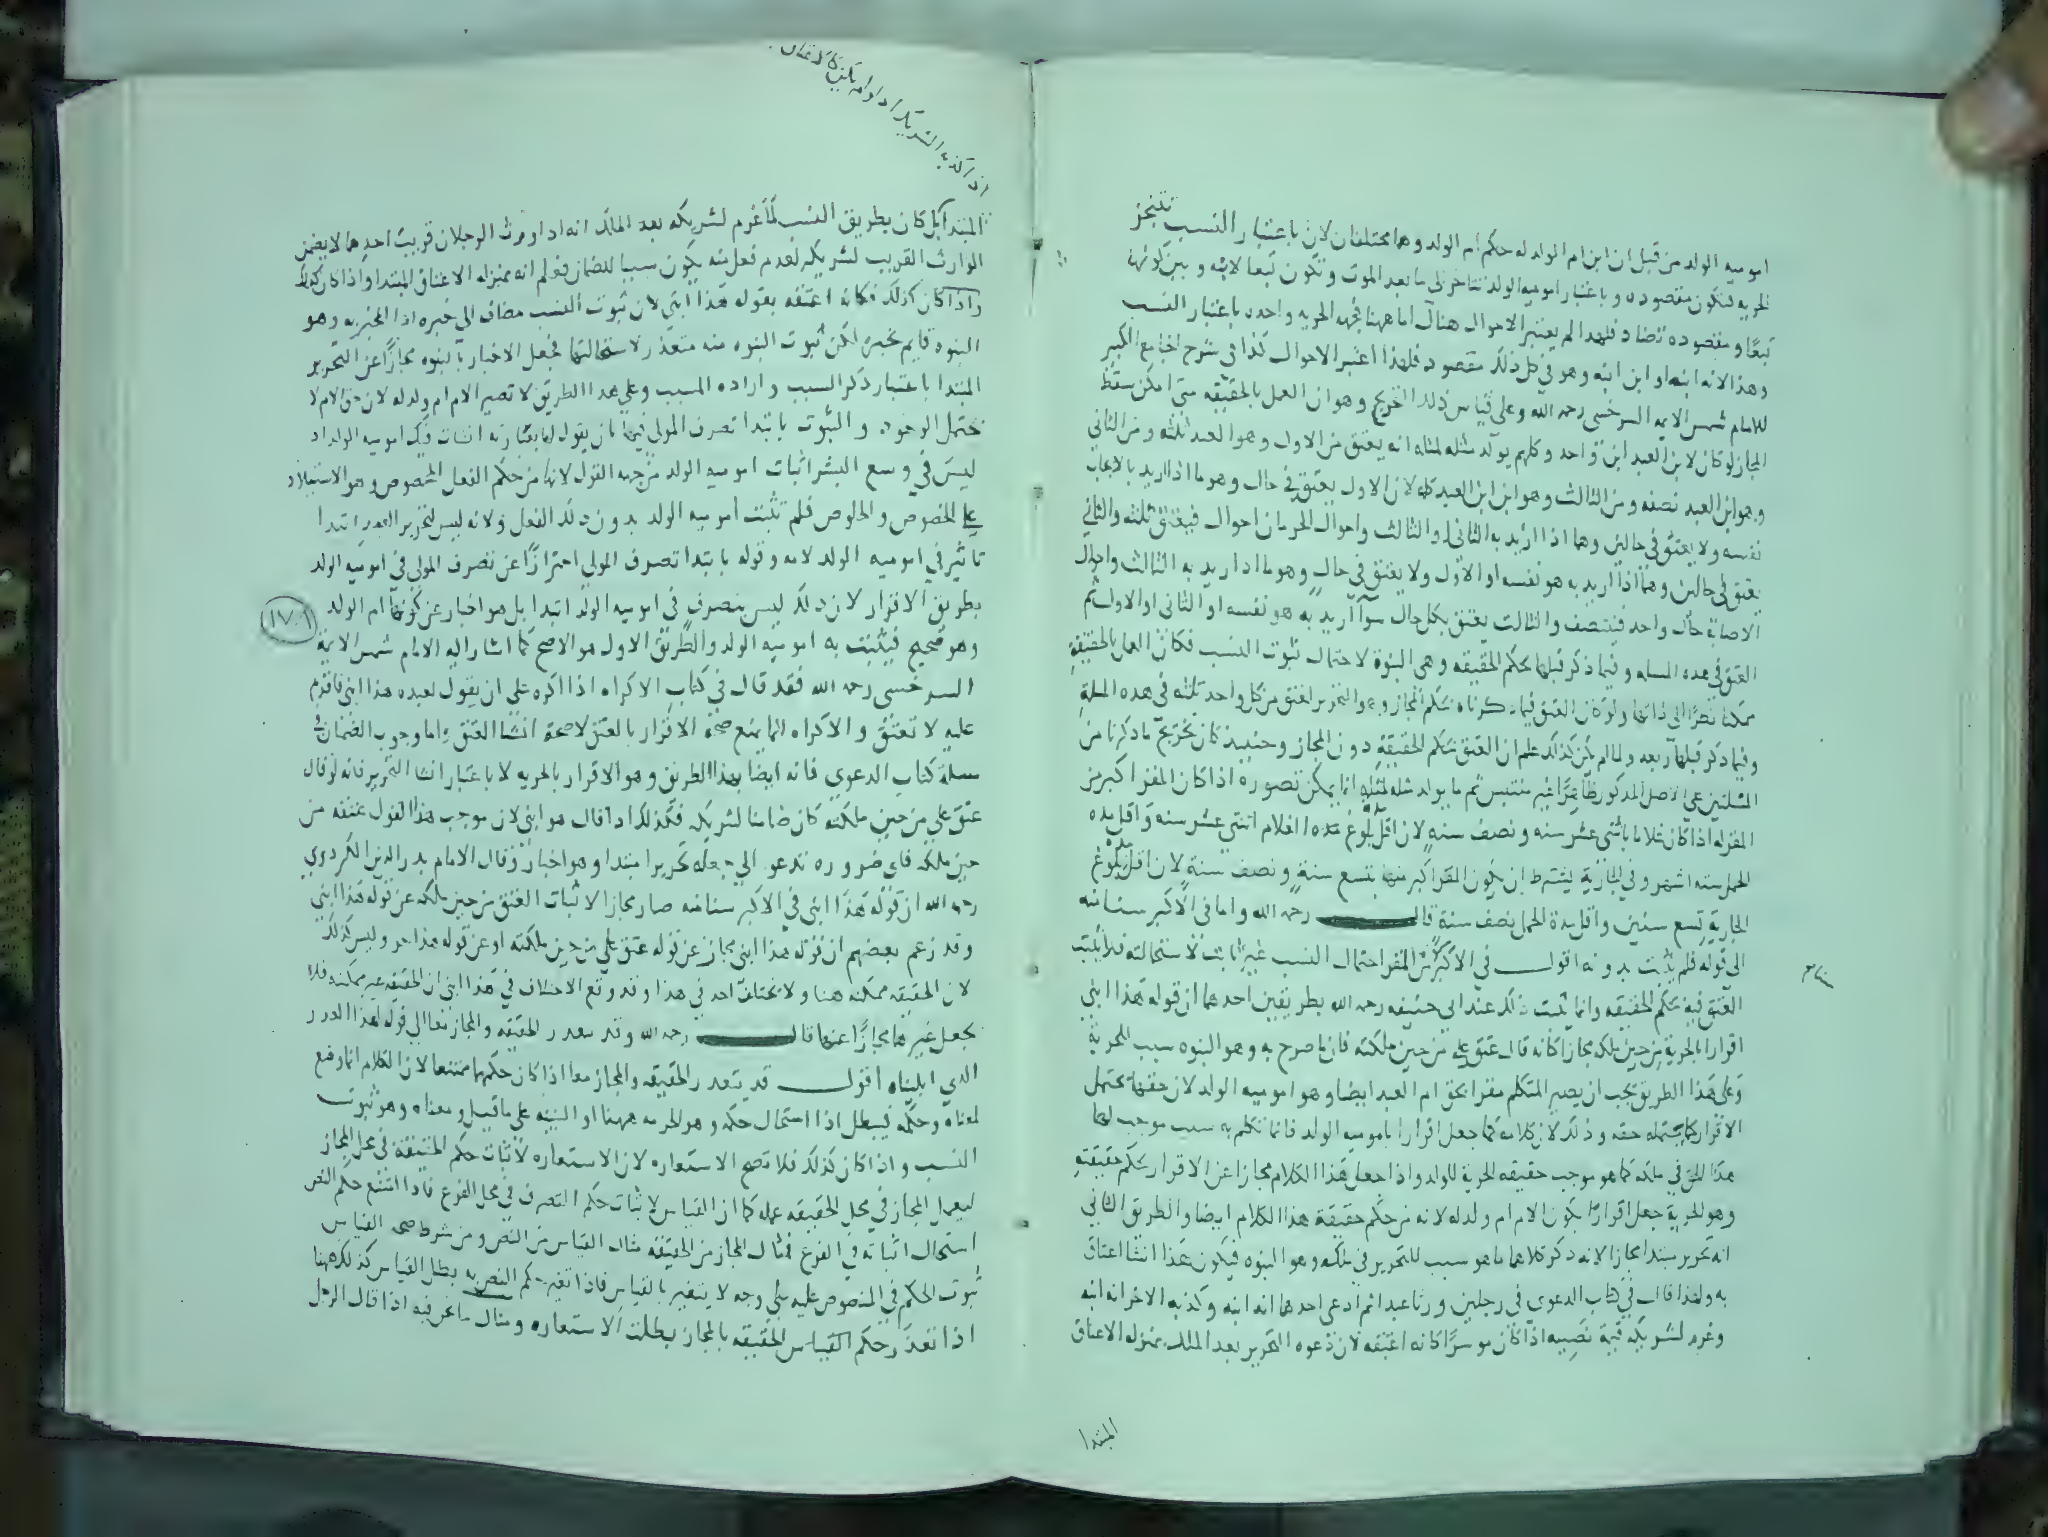 امومية الولد من قبل ان ابن ام الولد له حكم ام الولد وهما مختلفان لان باعتبار النسب تتنجز
الحريه فتكون مقصوده وباعتبار اموميه الولد تتاخر الى ما بعد الموت وتكون تبعا لابنه وبين كونها
تبعا ومقصوده تضاد فلهذا لم يعتبر الاحوال هناك اما ههنا فجهه الحريه واحده باعتبار النسب
وهذا لانه ابنه او ابن ابنه وهو في كل ذلك مقصود فلهذا اعتبر الاحوال كذا في شرح الجامع الكبير
للامام شمس الايمه السرخسي رحمه الله وعلى قياس ذلك التخريج وهو ان العمل بالحقيقه متى امكن سقط
المجاز لو كان لابن العبد ابن واحد وكلهم يولد مثله لمثله انه يعتق من الاول وهو العبد ثلثه ومن الثاني
وهو ابن العبد نصفه ومن الثالث وهو ابن ابن العبد كله لان الاول يعتق في حال وهو ما اذا اريد بالايجاب
نفسه ولا يعتق في حالين وهما اذا اريد به الثاني او الثالث واحوال الحرمان احوال فيعتق ثلثه والثاني
يعتق في حالين وهما اذا اريد به هو نفسه او الاول ولا يعتق في حال وهو ما اذا اريد به الثالث واحوال
الاصابة حال واحد فيتنصف والثالث يعتق بكل حال سوآ اريد به هو نفسه او الثاني او الاول ثم
العتق في هذه المساله وفيما ذكر قبلها بحكم الحقيقه وهي البنوة لاحتمال ثبوت النسب فكان العمل بالحقيقة
ممكنا نظرا الى ذاتها ولو كان العتق فيما ذكرناه بحكم المجاز وهو التحرير لعتق من كل واحد ثلثه في هذه المسلة
وفيما ذكر قبلها ربعه ولما لم يكن كذلك علم ان العتق بحكم الحقيقة دون المجاز وحينيذ كان تخريج ما ذكرنا من
المثلتين على الاصل المذكور ظاهرا غير ملتبس ثم ما يولد مثله لمثله انما يمكن تصوره اذا كان المقر اكبر من
المقر له اذا كان غلاما باثنى عشر سنه ونصف سنه لان اقل مدة بلوغ الغلام اثنتي عشر سنه واقل مده
الحمل سته اشهر وفي الجارية يشترط ان يكون المقر اكبر منها بتسع سنة ونصف سنة لان اقل مدة بلوغ
الجارية تسع سنين واقل مدة الحمل نصف سنة قال رحمه الله واما في الاكبر سنا منه
الى قوله فلم يثبت بدونه اقول في الاكبر من المقر احتمال النسب غير ثابت لاستحالته فلا يثبت
العتق فيه بحكم الحقيقه وانما يثبت ذلك عند ابي حنيفه رحمه الله بطريقين احدهما ان قوله هذا ابني
اقرارا بالحرية من حين ملكه مجازا كانه قال عتق على من حين ملكته فان ما صرح به وهو البنوه سبب للحرية
وعلى هذا الطريق يجب ان يصير المتكلم مقرا بحق ام العبد ايضا وهو اموميه الولد لان حقها يحتمل
الاقرار كما يحتمله حقه وذلك لان كلامه كما جعل اقرارا باموميه الولد فانما تكلم به سبب موجب لها
هذا الحق في ملكه كما هو موجب حقيقه الحرية للولد واذا جعل هذا الكلام مجازا عن الاقرار بحكم حقيقته
وهو الحرية جعل اقرارا بكون الام ام ولد له لانه من حكم حقيقة هذا الكلام ايضا والطريق الثاني
انه تحرير مبتدا مجازا لانه ذكر كلاما هو سبب للتحرير في ملكه وهو البنوه فيكون هذا انشا اعتاق
به ولهذا قال في كتاب الدعوى في رجلين ورثا عبدا ثم ادعى احدهما انه ابنه وكذبه الاخر انه ابنه
وغرم لشريكه قيمة نصيبه اذا كان موسرا كانه اعتقه لان دعوه التحرير بعد الملك بمنزله الاعتاق
المبتدا
اذا كذبه الشريك
المبتدا بل كان بطريق النسب لما غرم لشريكه بعد الملك انه اذا ورث الرجلان قريب احدهما لا يضمن
الوارث القريب لشريكه لعدم فعل منه يكون سببا للضمان فعلم انه بمنزله الاعتاق المبتدا واذا كان كذلك
واذا كان كذلك فكانه اعتقه بقوله هذا ابني لان ثبوت النسب مضاف الى خبره اذا المخبر به وهو
البنوه قايم بخبره لكن ثبوت البنوه منه متعذر لاستحالتها فجعل الاخبار بالبنوه مجازا عن التحرير
المبتدا باعتبار ذكر السبب واراده المسبب وعلى هذا الطريق لا تصير الام ام ولد له لان حق الام لا
يحتمل الوجود والثبوت بابتدا تصرف المولى فيها بان يقول لها انشات فيك اموميه الولد اذ
ليس في وسع البشر اثبات اموميه الولد من جهه القول لانها من حكم الفعل المخصوص وهو الاستيلاد
على الخصوص والخلوص فلم تثبت اموميه الولد بدون ذلك الفعل ولانه ليس لتحرير العبد ابتدا
تاثير في اموميه الولد لامه وقوله بابتدا تصرف المولى احترازا عن تصرف المولى في اموميه الولد
بطريق الاقرار لان ذلك ليس بتصرف في اموميه الولد ابتدا بل هو اخبار عن كونها ام الولد
١٧٠٩
وهو صحيح فيثبت به اموميه الولد والطريق الاول هو الاصح كما اشار اليه الامام شمس الايمة
السرخسي رحمه الله فقد قال في كتاب الاكراه اذا اكره على ان يقول لعبده هذا ابني
عليه لا تعتق والاكراه انما يمنع صحة الاقرار بالعتق لا صحة انشا العتق واما وجوب الضمان في
مسلة كتاب الدعوى فانه ايضا بهذا الطريق وهو الاقرار بالحريه لا باعتبار انشا التحرير فانه لو قال
عتق على من حين ملكته كان ضامنا لشريكه فكذلك اذا قال هو ابني لان موجب هذا القول عتقه من
حين ملكه فاى ضروره تدعو الى جعله تحريرا مبتدا وهو اخبار وقال الامام بدر الدين الكردري
رحمه الله ان قوله هذا ابني في الاكبر سنا منه صار مجازا لاثبات العتق من حين ملكه عن قوله هذا ابني
وقد زعم بعضهم ان قوله هذا ابني مجاز عن قوله عتق على من حين ملكته او عن قوله هذا حر وليس كذلك
لان الحقيقه ممكنه هنا ولا يختلف احد في هذا وقد وقع الاختلاف في هذا ابني ان الحقيقه غير ممكنه فلا
يجعل غيرها مجازا عنها قال رحمه الله وقد تتعذر الحقيقه والمجاز معا الى قوله لهذا العذر
الذي ابليناه اقول قد يتعذر الحقيقه والمجاز معا اذا كان حكمهما ممتنعا لان الكلام انما وضع
لمعناه وحكمه فيبطل اذا استحال حكمه وهو الحرمه ههنا او البينه على ما قيل ومعناه وهو ثبوت
النسب واذا كان كذلك فلا تصح الاستعاره لان الاستعاره لاثبات حكم الحقيقة في محل المجاز
ليعمل المجاز في محل الحقيقه عمله كما ان القياس لاثبات حكم التصرف في محل الفرع فاذا امتنع حكم النص
استحال اثباته في الفرع فمثال المجاز من الحقيقه مثال القياس من النص ومن شرط صحه القياس
ثبوت الحكم في المنصوص عليه على وجه لا يتغير بالقياس فاذا تغير حكم النص به بطل القياس كذلك ههنا
اذا تعذر حكم القياس الحقيقه بالمجاز بطلت الاستعاره ومثال ما نحن فيه اذا قال الرجل